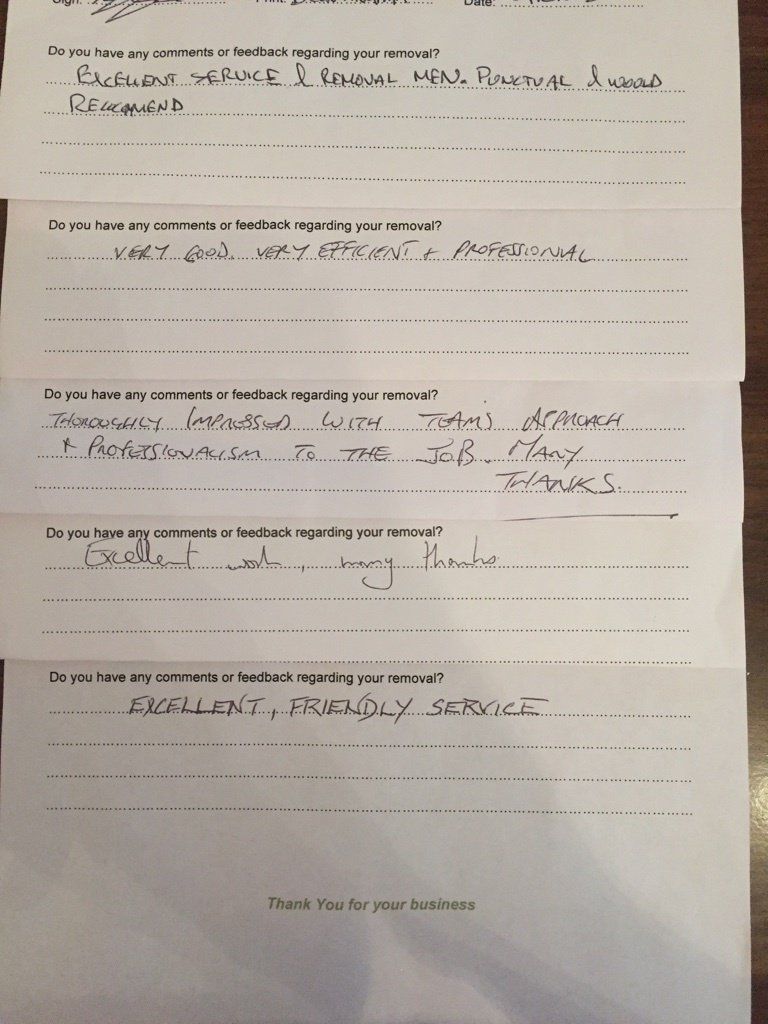 Sign: Print: Date:
Do you have any comments or feedback regarding your removal?
EXCELLENT SERVICE & REMOVAL MEN. PUNCTUAL & WOULD
RECCOMEND
Do you have any comments or feedback regarding your removal?
VERY GOOD. VERY EFFICIENT + PROFESSIONAL
Do you have any comments or feedback regarding your removal?
THOROUGHLY IMPRESSED WITH TEAMS APPROACH
+ PROFESSIONALISM TO THE JOB. MANY
THANKS.
Do you have any comments or feedback regarding your removal?
Excellent work, many thanks
Do you have any comments or feedback regarding your removal?
EXCELLENT, FRIENDLY SERVICE
Thank You for your business